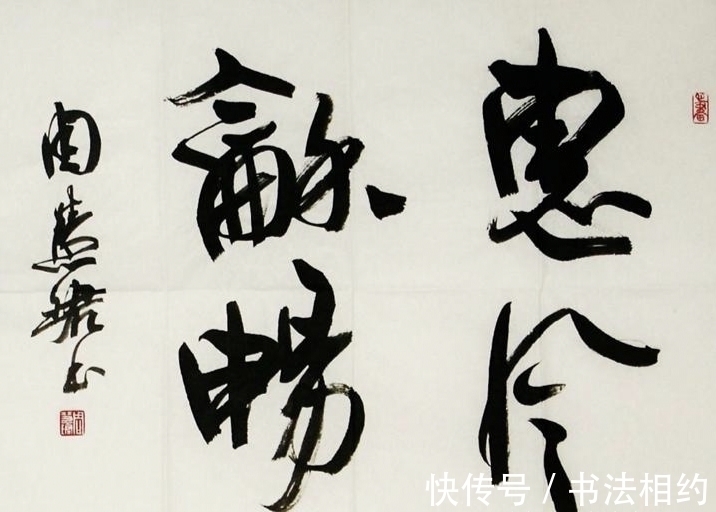 惠風
龢暢
周慧珺书
快传号 / 书法相约